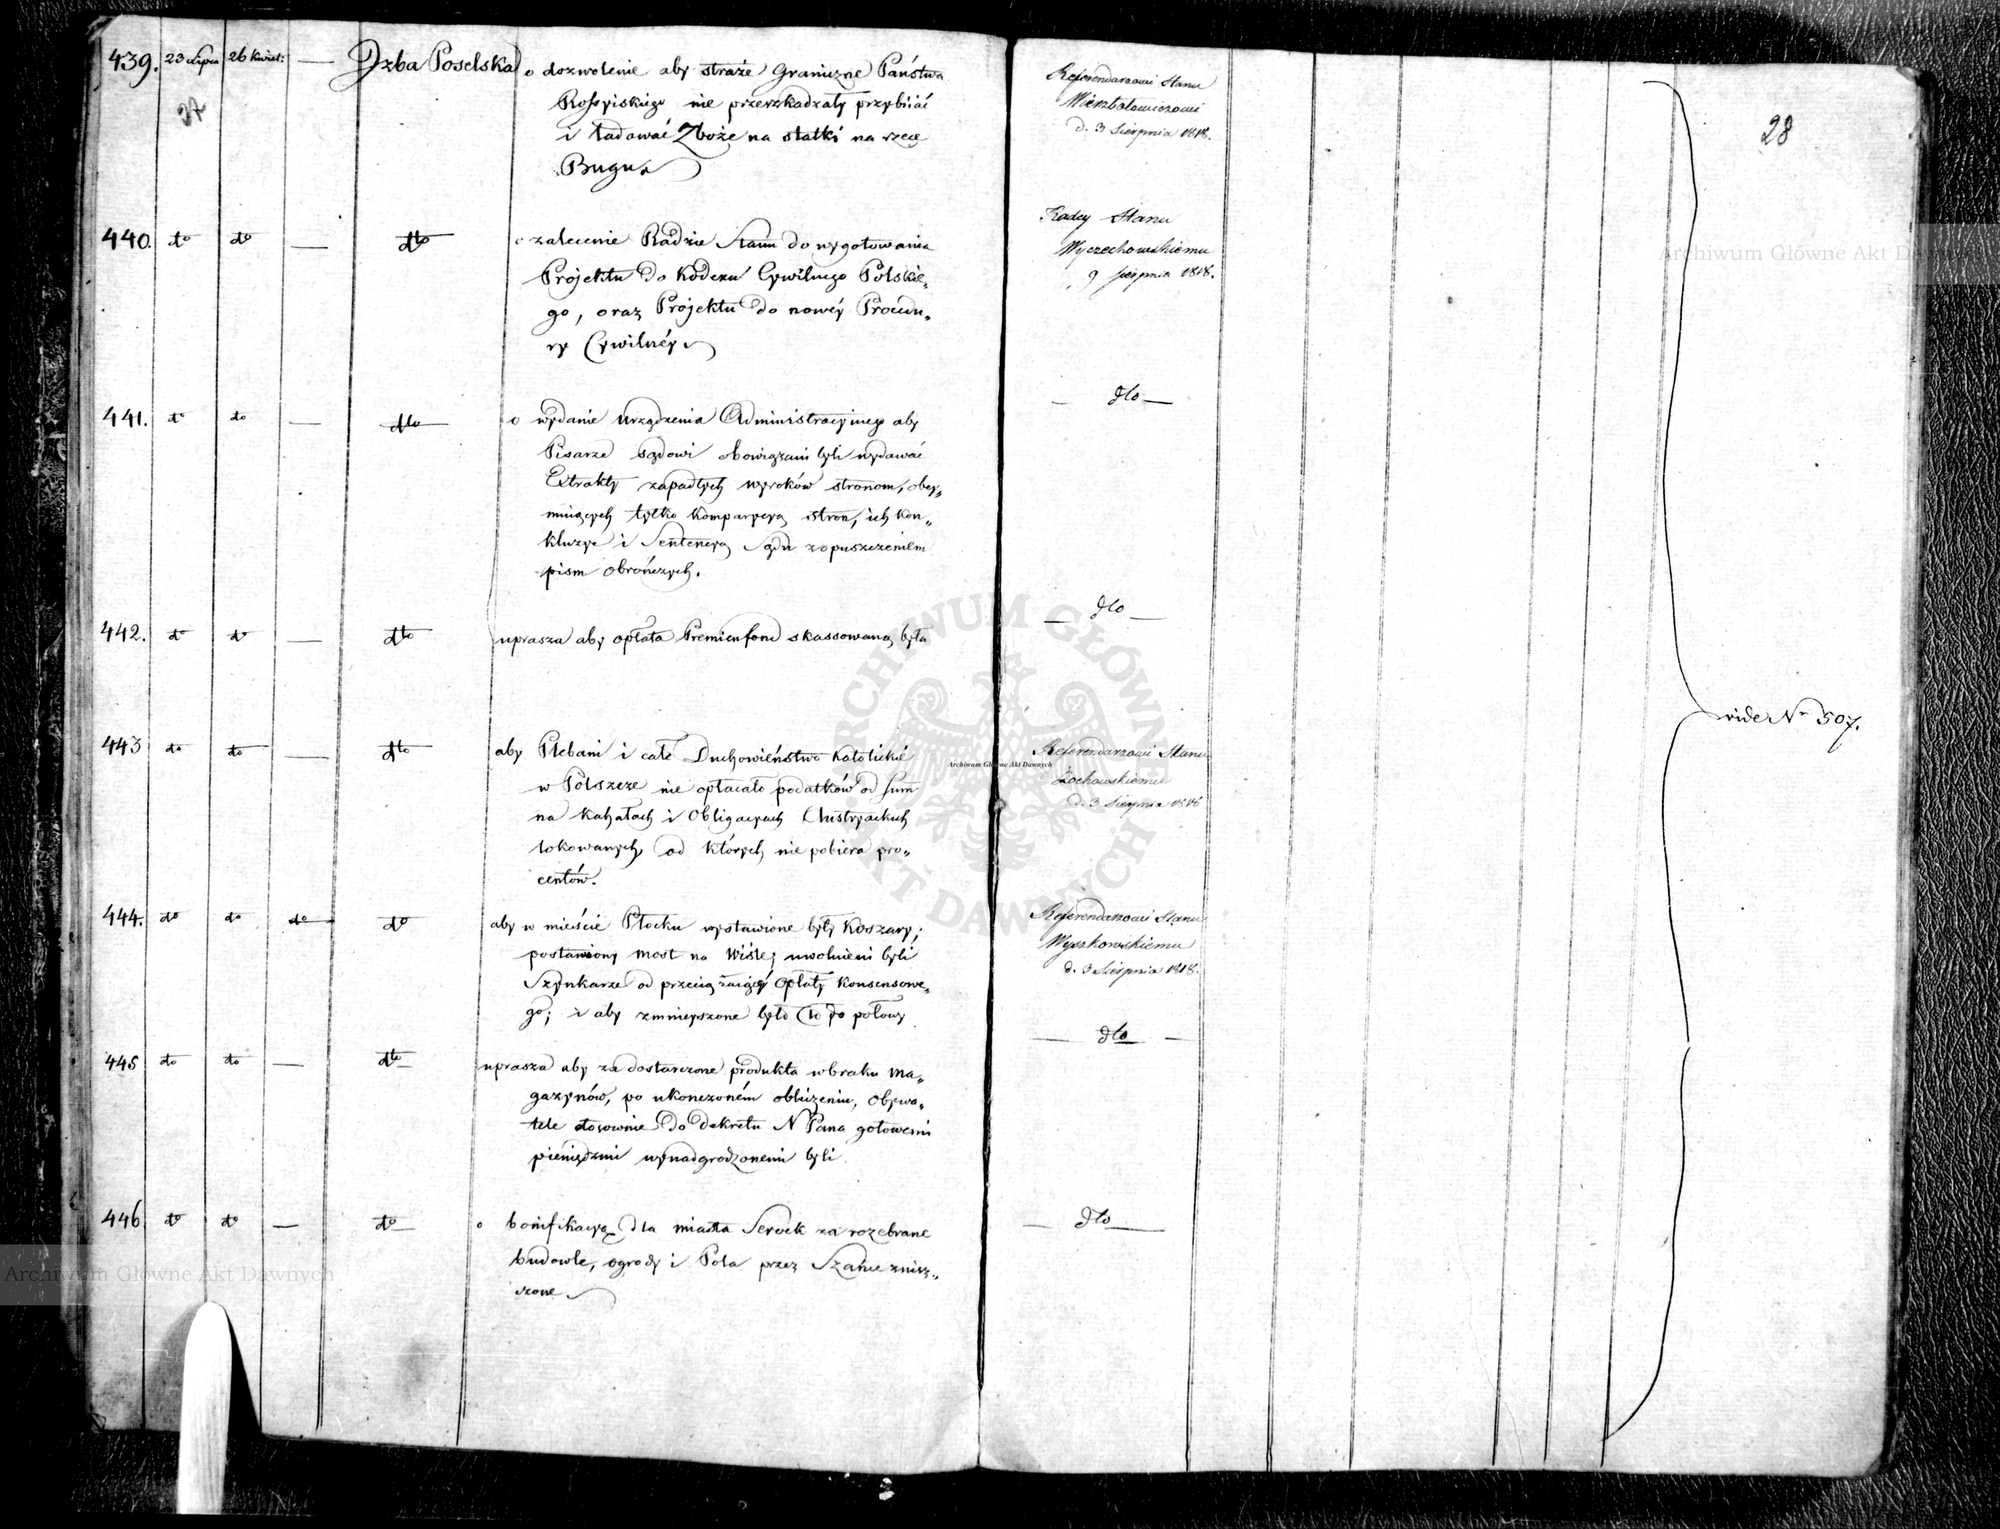 439. 23 Lipca 26 Kwiet: — Izba Poselska o dozwolenie aby straże Graniczne Państwa
Rossyiskiego nie przeszkadzały przybiiać
i ładować Zboże na statki na rzece
Bugu
Referendarzowi Stanu
d. 3 Sierpnia 1818.
28
440. do do — dto o zalecenie Radzie Stanu do wygotowania
Projektu do Kodexu Cywilnego Polskie„
go, oraz Projektu do nowéy Procedu„
ry Cywilnéy
Radcy Stanu
Wyczechowskiemu
9 Sierpnia 1818.
441. do do — dto o wydanie urządzenia Administracyinego aby
Pisarze sądowi obowiązani byli wydawać
Extrakty zapadłych wyroków stronom, obey„
muiących tylko komparycyą stron, ich kon„
kluzye i Sentencyą Sądu z opuszczeniem
pism obrończych.
— dto —
442. do do — dto uprasza aby opłata Premienfond skassowaną była
— dto —
443 do do — dto aby Plebani i całe Duchowieństwo Katolickie
w Polszcze nie opłacało podatków od Sum
na Kahałach i Obligacyach Austryackich
lokowanych, od których nie pobiera pro„
centów.
Referendarzowi Stanu
Żochowskiemu
d. 3 Sierpnia 1818
vide Nr 507.
444. do do do do aby w mieście Płocku wystawione były Koszary;
postawiony most na Wiśle; uwolnieni byli
Szynkarze od przeciążaiącéy Opłaty Konsensowe„
go; i aby zmnieyszone było to do połowy
Referendarzowi Stanu
Wyszkowskiemu
d. 3 Sierpnia 1818.
445 do do — dto uprasza aby za dostarczone produkta w braku Ma„
gazynów, po ukonczoném oblężeniu, Obywa„
tele stosownie do dekretu N Pana gotowemi
pieniędzmi wynadgrodzonemi byli
— dto —
446 do do — do o bonifikacyą dla miasta Serock za rozebrane
budowle, ogrody i Pola przez Szańce znisz„
czone
— dto —
Archiwum Główne Akt Dawnych
Archiwum Główne Akt Dawnych
Archiwum Główne Akt Dawnych
ARCHIWUM GŁÓWNE AKT DAWNYCH